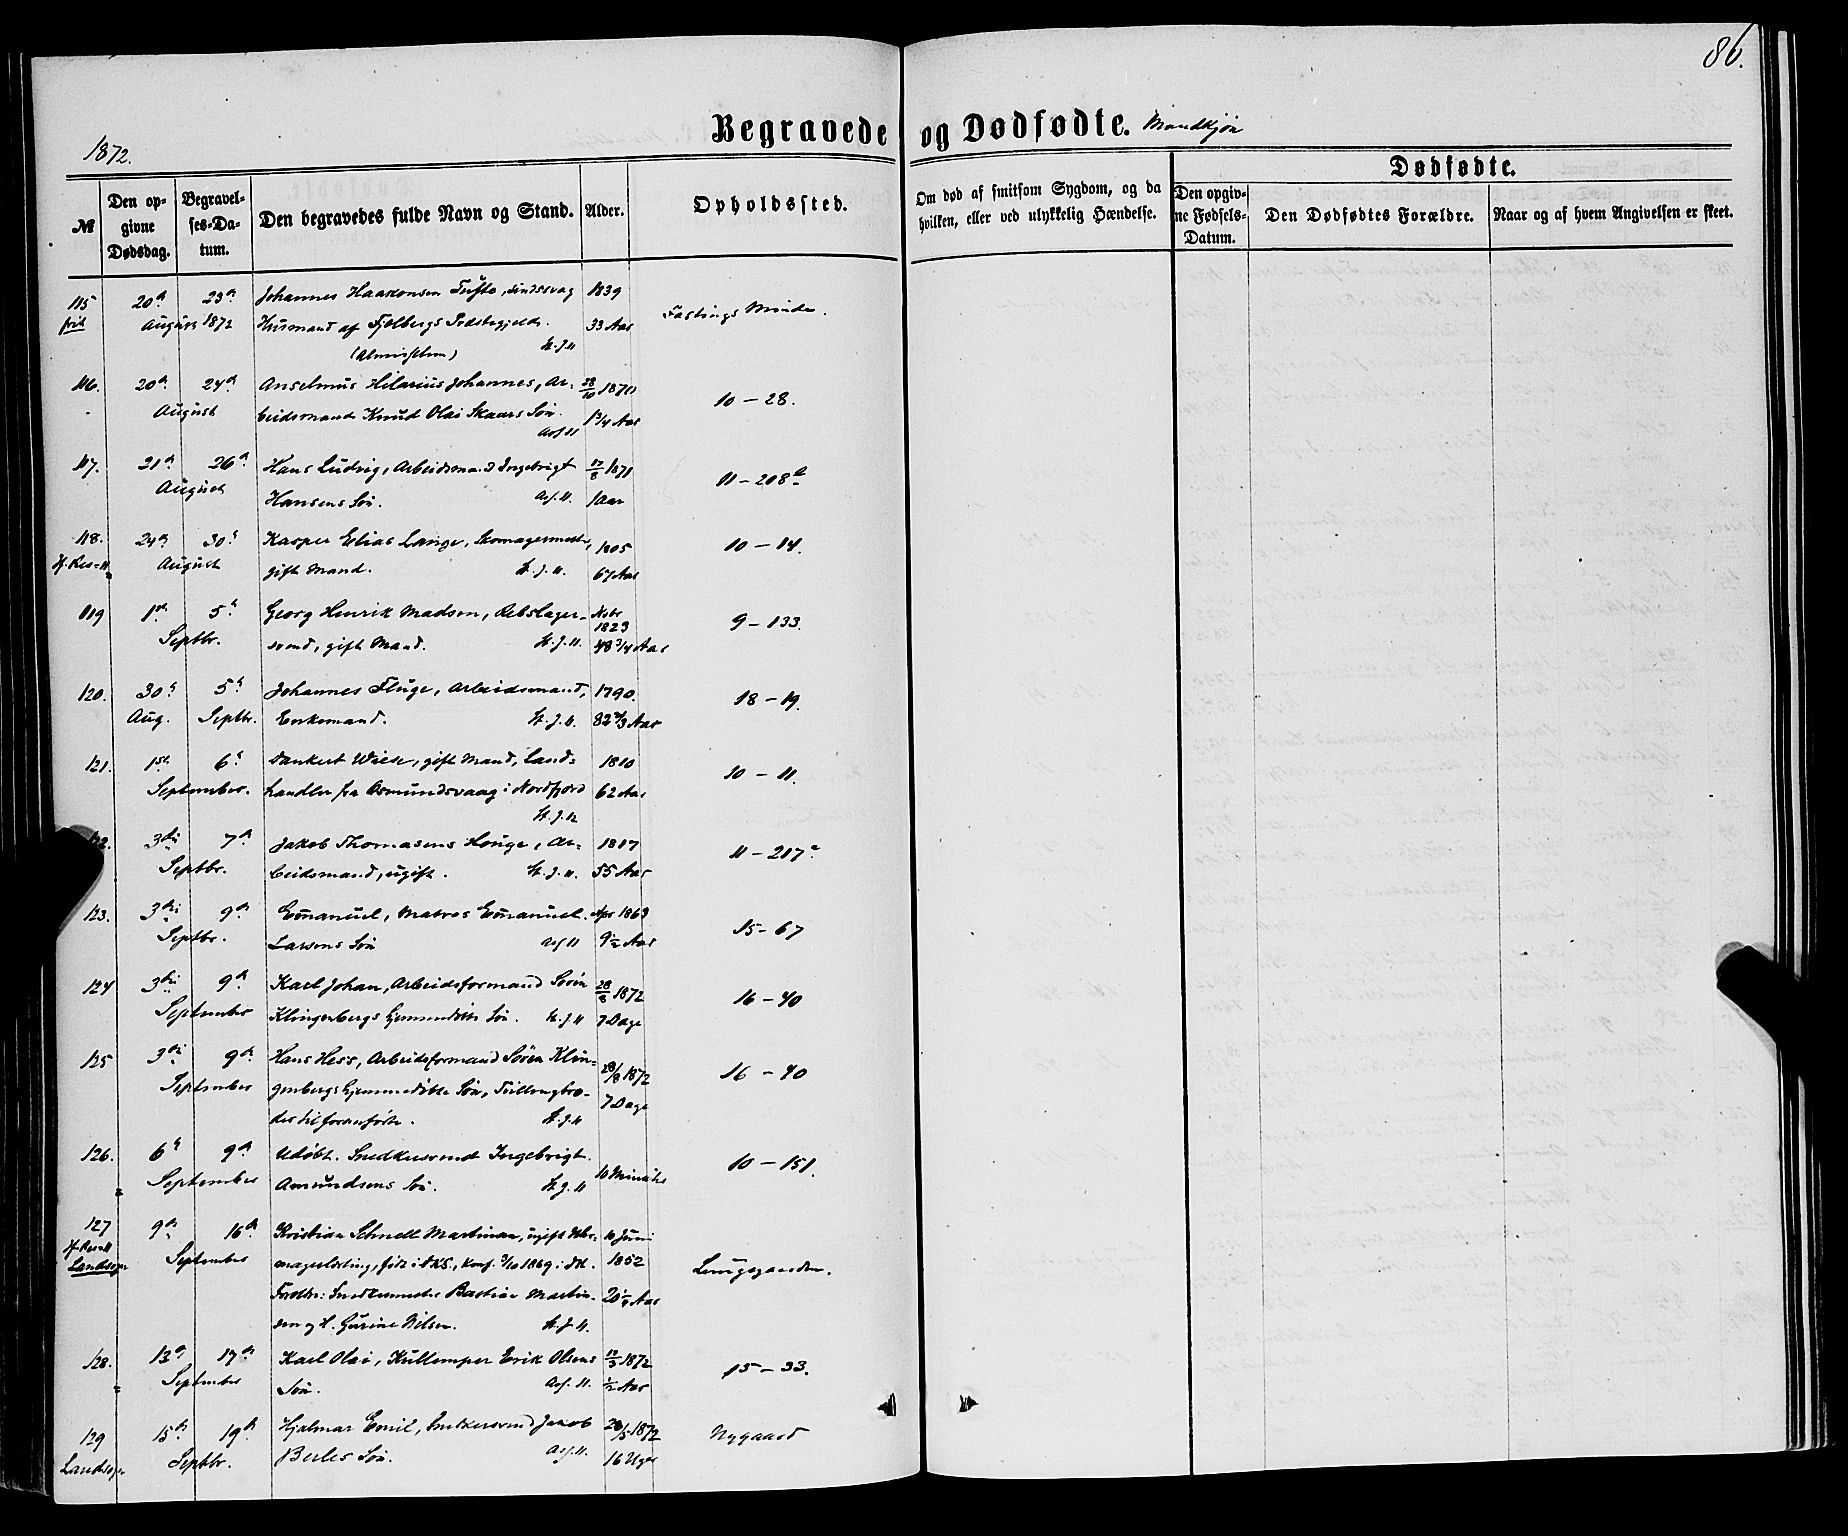 86.
1872.
Begravede og Dødfødte. Mandkjøn
№
Den opgivne Dødsdag.
Begravelses-Datum.
Den begravedes fulde Navn og Stand.
Alder.
Opholdssted.
Om død af smitsom Sygdom, og da
hvilken, eller ved ulykkelig Hændelse.
Dødfødte.
Den opgivne Fødsels-Datum.
Den Dødfødtes Forældre.
Naar og af hvem Angivelsen er skeet.
115 20de 23de Johannes Haakonsen Tufto, sindssvag 1839
frit August 1872 Husmand af Fjelbergs Præstegjeld. 33 Aar Fastings Minde.
St. J.
116. 20de 24de Anselmus Hilarius Johannes, Ar- 28/10 1870 10 – 28.
August beidsmand Knud Olai Skaars Søn. 1 3/4 Aar
117. 21de 26de Hans Ludvig, Arbeidsmand Ingebrigt 17/8 1871 11 – 208a
August Hansens Søn. 1 Aar
118. 24de 30te Kasper Elias Lange, Skomagermester, 1805 10 – 14.
August gift Mand. St. J. 67 Aar
119 1ste 5te Georg Henrik Madsen, Rebslager- Nvbr 1823 9 – 133.
Septbr. svend, gift Mand. St. J. 48 3/4 Aar
120. 30te 5te Johannes Fluge, Arbeidsmand, 1790. 18 – 19.
Aug. Septbr. Enkemand. St. J. 82 2/3 Aar
121. 1ste 6te Dankert Wiese, gift Mand, Land- 1810 10 – 11.
September. handler fra Osmundsvaag i Nordfjord 62 Aar
St. J.
3die 7de Jakob Thomasens Houge, Ar- 1817 11 – 217
Septbr. beidsmand, ugift. St. J. 55 Aar
123. 3die 9de Emanuel, Matros Emanuel Apr 1863 15 – 67
Septbr. Larsens Søn 9 1/2 Aar
124 3die 9de Karl Johan, Arbeidsformand Søren 28/8 1872 16 – 40
September Klingenbergs hjemmedøbte Søn. St. J. 7 Dage
125 3die 9de Hans Hess, Arbeidsformand Søren Klin- 28/8 1872 16 – 40
September genbergs hjemmedøbte Søn, Tvillingbro- 7 Dage
der til foranførte. St. J.
126. 6te 9de Udøbt. Snedkersvend Ingebrigt 10 Minuter 10 – 151.
September Amundsens Søn. St. J.
127 9de 16de Kristian Schnell Martinsen, ugift 10 Juni
Landsogn September født i DKS., konf. 3/10 1869 i dto. 1852 Lungegaarden.
Foreldre: Snedkermester Bastian Martin- 20 1/4 Aar
sen og H. Gurine Nilsen. St. J.
128. 13de 17de Karl Olai, Kullemper Erik Olsens 17/3 1872 15 – 33.
September Søn. 1/2 Aar
129 15de 19de Hjalmar Emil, Snedkersvend Jakob 28/5 1872 Nygaard
Landsogn Septbr. Søn. 16 Uger